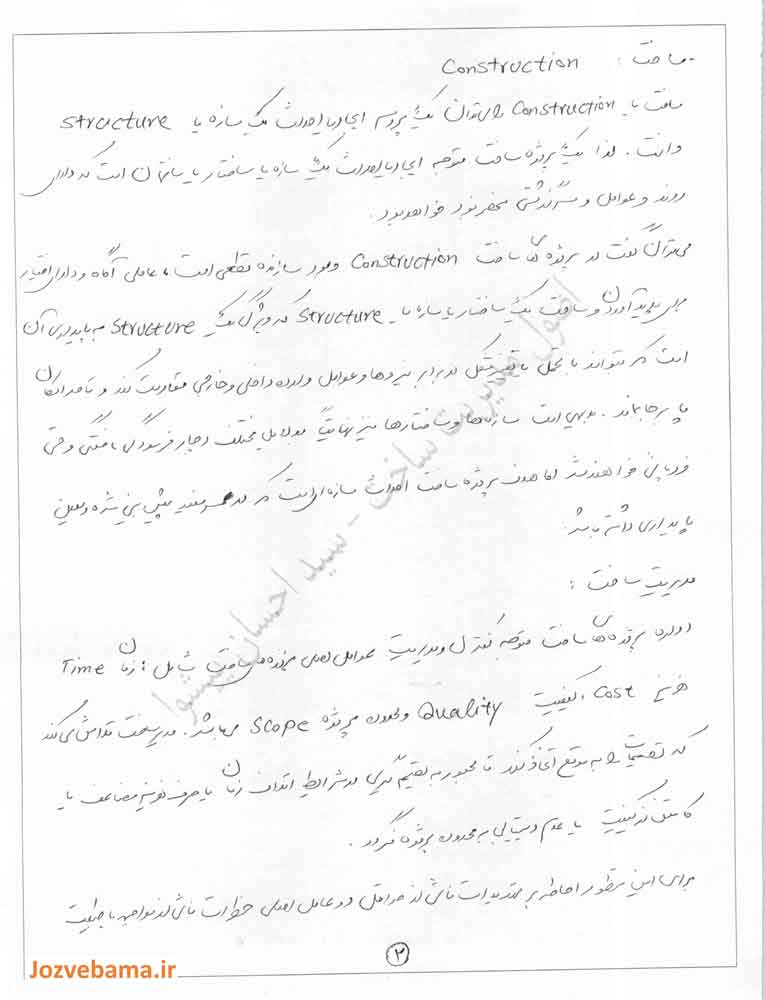 ساخت : Construction
ساخت یا Construction را می‌توان یک پروسه ایجاد یا احداث یک سازه یا Structure
دانست . لذا یک پروژه ساخت متوجه ایجاد یا احداث یک سازه یا ساختار یا سازمان است که دارای
روند و عوامل و سرگذشتی منحصربفرد خواهد بود .
می‌توان گفت در پروژه های ساخت Construction وجود سازنده قطعی است ، عاملی آگاه و دارای اختیار
برای پدید آوردن و ساخت یک ساختار یا سازه یا Structure که ویژگی یک Structure به پایداری آن
است که بتواند با تحمل یا تغییر شکل در برابر نیروها و عوامل وارده داخلی و خارجی مقاومت کند و تا حد امکان
پا برجا بماند . بدیهی است سازه‌ها و ساختارها نیز نهایتاً به دلایل مختلف دچار فرسودگی ، و حتی
فروپاشی خواهند شد اما هدف پروژه ساخت احداث سازه ای است که در پیش بینی شده و معین
پایداری داشته باشد .
مدیریت ساخت :
اداره پروژه های ساخت متوجه کنترل و مدیریت عوامل اصلی پروژه های ساخت شامل : زمان Time
هزینه Cost ، کیفیت Quality و محدوده پروژه Scope می باشد . مدیر ساخت تلاش می کند
که تصمیمات را به موقع اتخاذ کند تا مجبور به تصمیم گیری در شرایط اتلاف زمان یا صرف هزینه مضاعف یا
کاستن از کیفیت یا عدم دستیابی به محدوده پروژه نگردد .
برای این منظور احاطه بر تهدیدات ناشی از حداقل دو عامل اصلی خطرات ناشی از مواجهه با طبیعت
۲
اصول مدیریت ساخت - سید احسان پیشوا
Jozvebama.ir